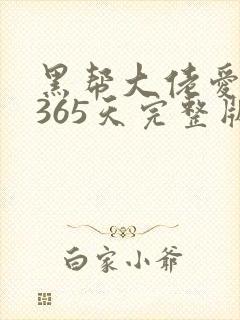 黑帮大佬爱
365天完整版
白家小爷